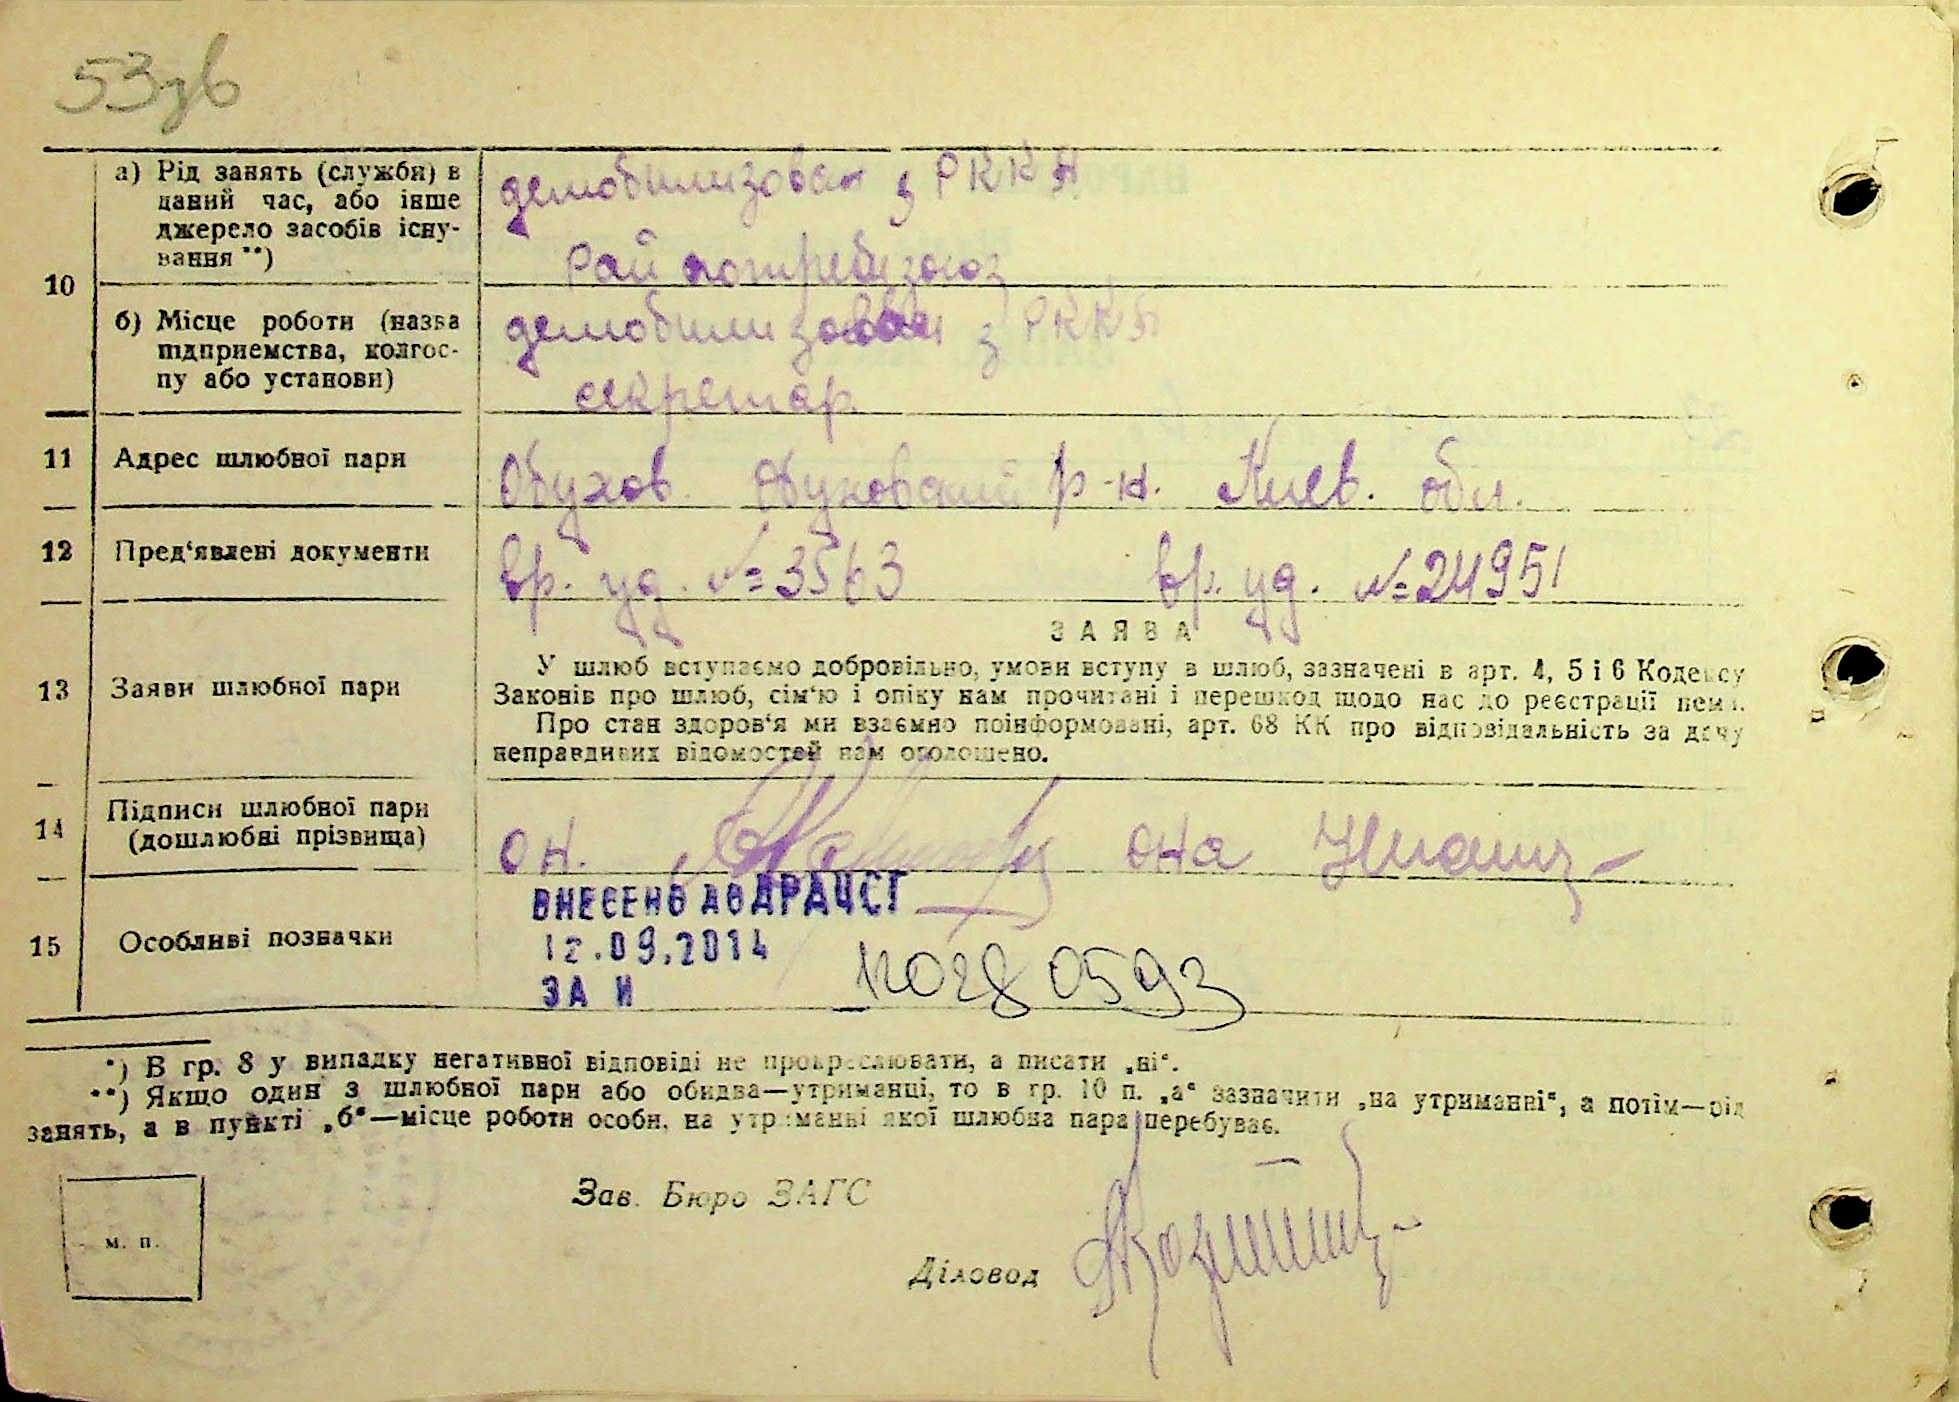 53зв
а) Рід занять (служби) в
даний час, або інше
джерело засобів існу-
вання **)
демобилизован з РККА
Рай потребсоюз
10
б) Місце роботи (назва
підприемства, колгос-
пу або установи)
демобилизован з РККА
секретар
11 Адрес шлюбної пари
Обухов Обуховский р-н. Киев. обл.
12 Пред‘явлені документи
вр. уд. № 3563 вр. уд. № 24951
ЗАЯВА
13 Заяви шлюбної пари
У шлюб вступаємо добровільно, умови вступу в шлюб, зазначені в арт. 4, 5 і 6 Кодексу
Законів про шлюб, сім‘ю і опіку нам прочитані і перешкод щодо нас до реєстрації нема.
Про стан здоров‘я ми взаємно поінформовані, арт. 68 КК про відповідальність за дачу
неправдивих відомостей нам оголошено.
14 Підписи шлюбної пари
(дошлюбні прізвища)
он. она
ВНЕСЕНО ДО ДРАЦСГ
15 Особливі позначки
12.09.2014
ЗА И 00280593
*) В гр. 8 у випадку негативної відповіді не прокреслювати, а писати „ні“.
**) Якщо один з шлюбної пари або обидва—утриманці, то в гр. 10 п. „а“ зазначити „на утриманні“, а потім—рід
занять, а в пункті „б“—місце роботи особи, на утриманні якої шлюбна пара перебуває.
Зав. Бюро ЗАГС
м. п.
Діловод